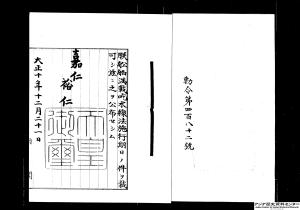 勅令第四百八十二號
朕船舶滿載吃水線法施行期日ノ件ヲ裁
可シ玆ニ之ヲ公布セシム
嘉仁
裕仁
天皇御璽
大正十年十二月二十一日
アジア歴史資料センター